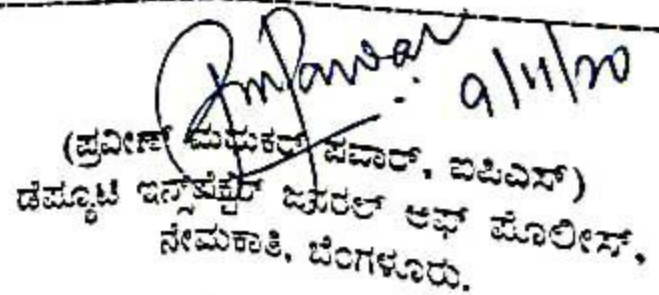 RmPawar
9/11/20
(ಪ್ರವೀಣ್ ಮಧುಕರ್ ಪವಾರ್, ಐಪಿಎಸ್)
ಡೆಪ್ಯೂಟಿ ಇನ್ಸ್‌ಪೆಕ್ಟರ್ ಜನರಲ್ ಆಫ್ ಪೊಲೀಸ್,
ನೇಮಕಾತಿ, ಬೆಂಗಳೂರು.